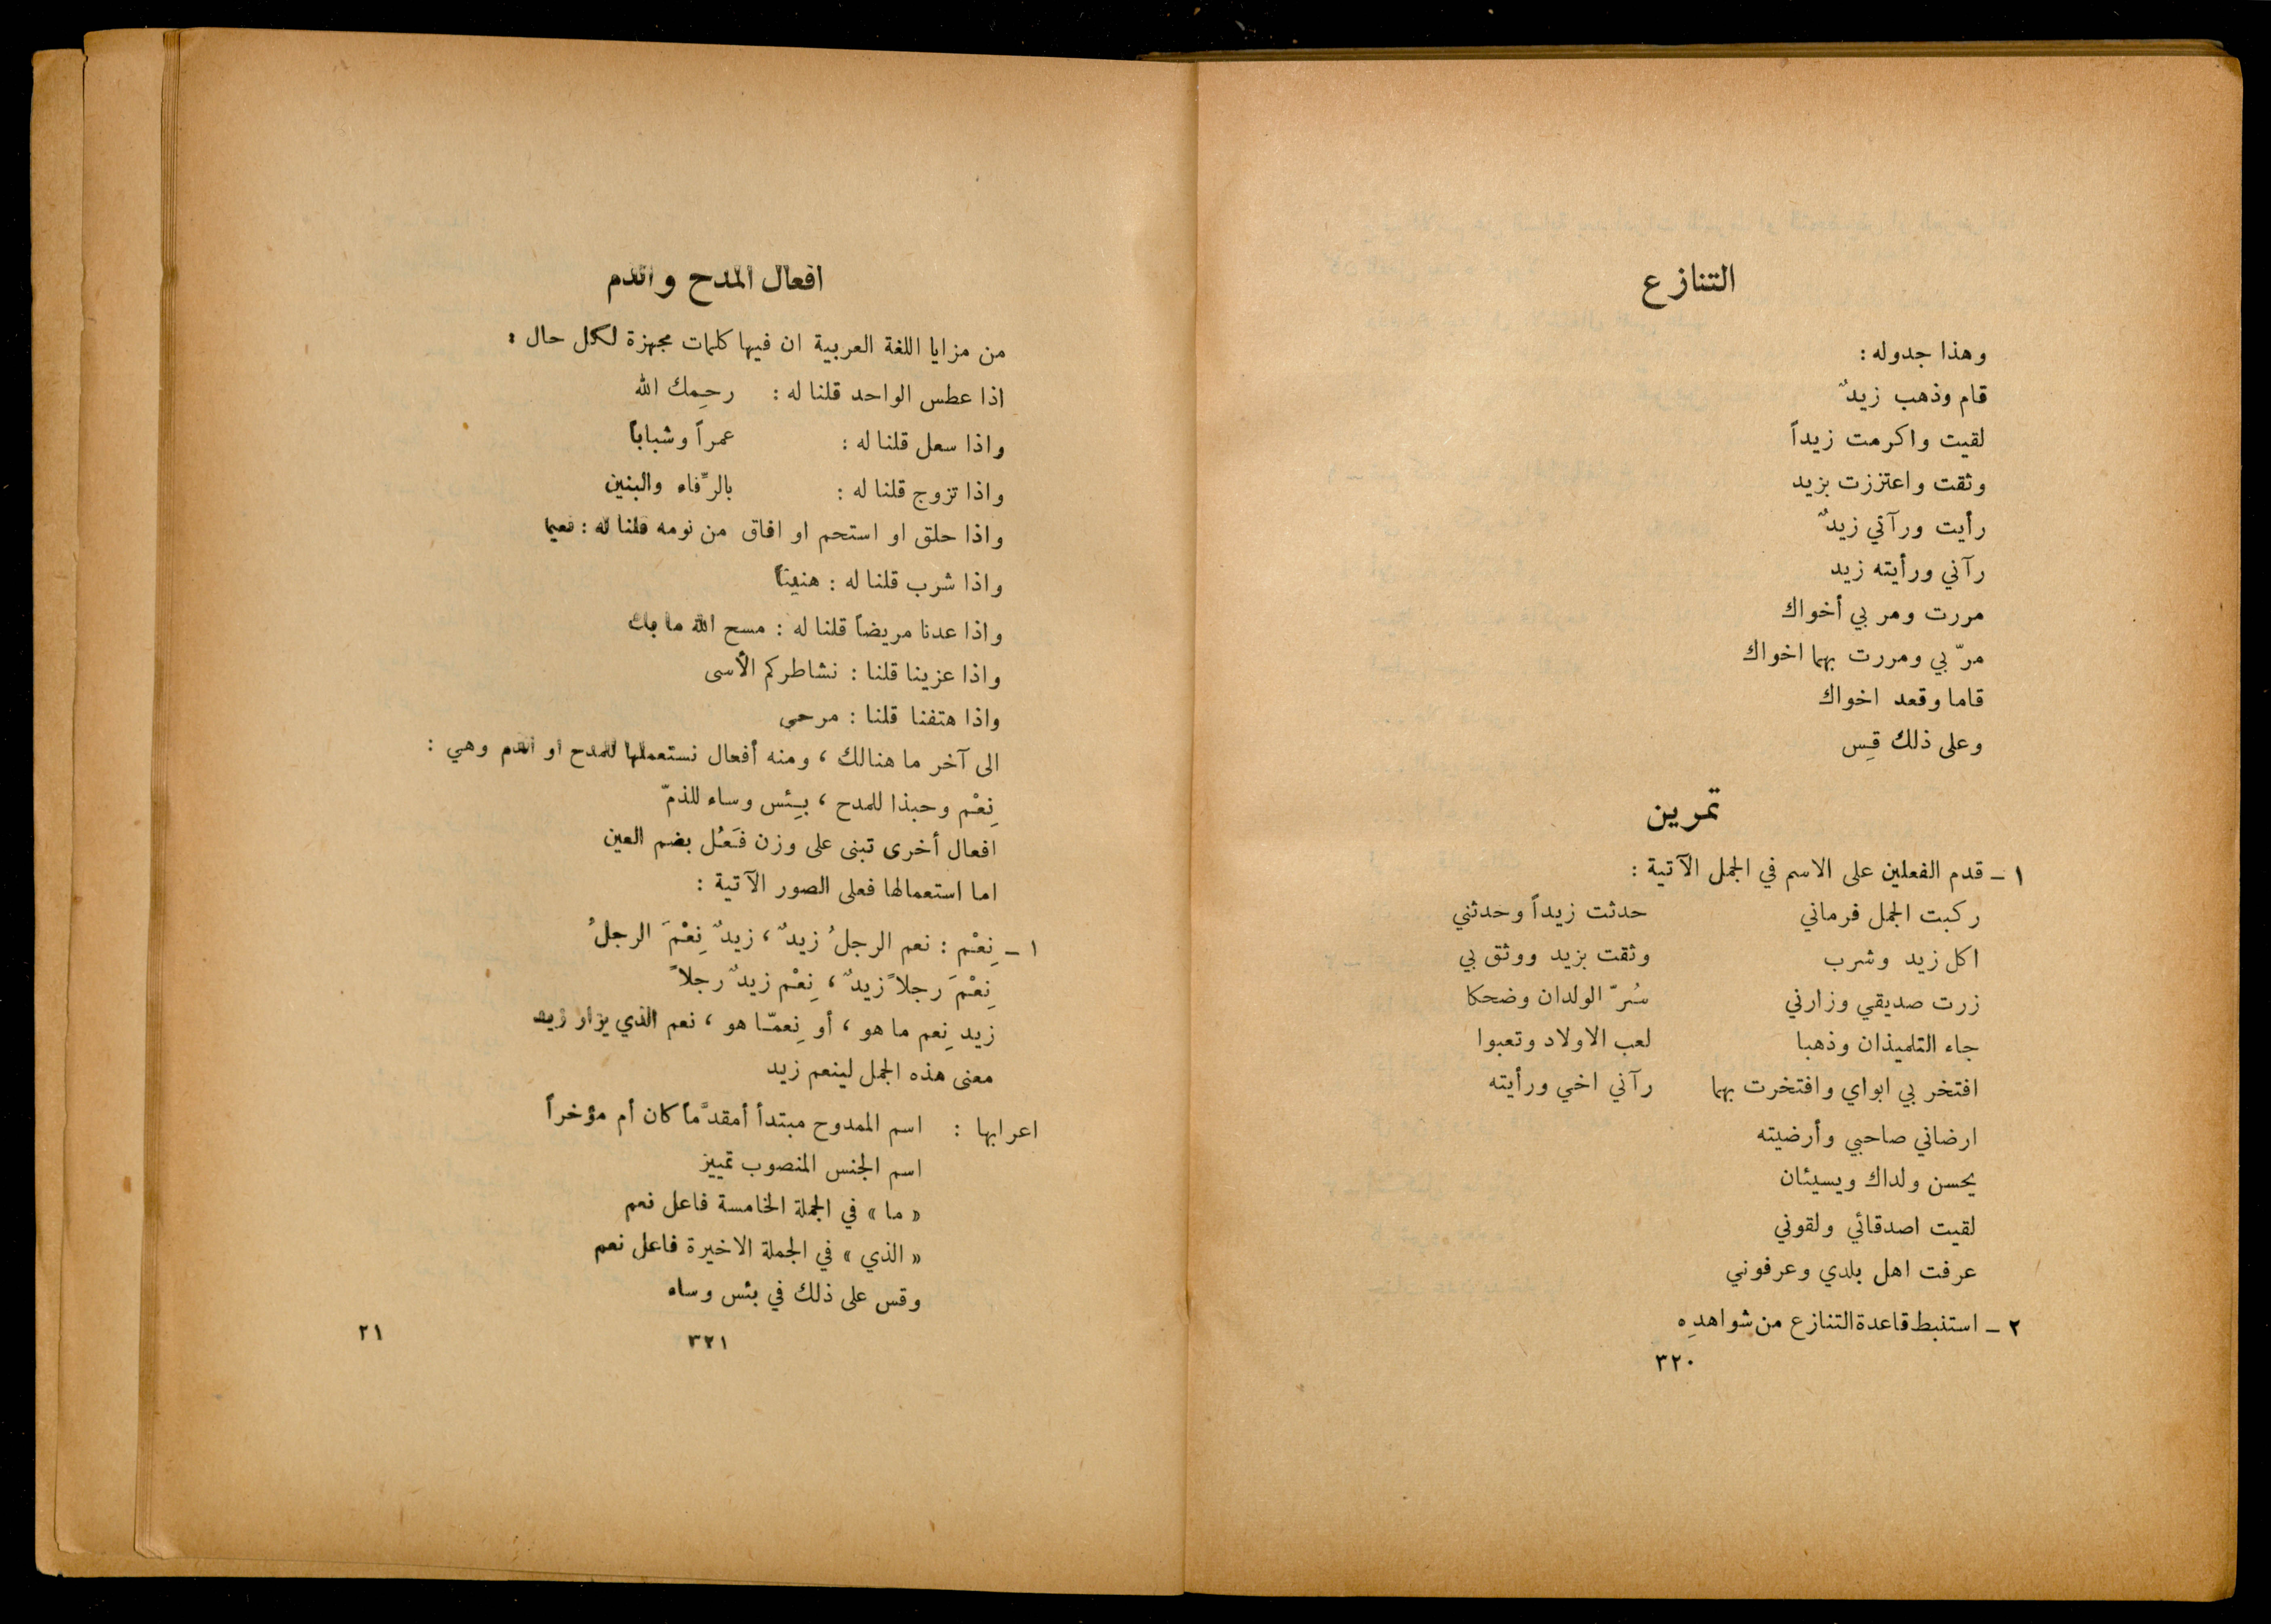 التنازع
وهذا جدوله :
قام وذهب زيدٌ
لقيت واكرمت زيداً
وثقت واعتززت بزيد
رأيت ورآني زيدٌ
رآني ورأيته زيد
مررت ومر بي أخواك
مرّ بي ومررت بهما اخواك
قاما وقعد اخواك
وعلى ذلك قِس
تمرين
١ ـ قدم الفعلين على الاسم في الجمل الآتية :
ركبت الجمل فرماني حدثت زيداً وحدثني
اكل زيد وشرب وثقت بزيد ووثق بي
زرت صديقي وزارني سُرّ الولدان وضحكا
جاء التلميذان وذهبا لعب الاولاد وتعبوا
افتخر بي ابواي وافتخرت بهما رآني اخي ورأيته
ارضاني صاحبي وأرضيته
يحسن ولداك ويسيئان
لقيت اصدقائي ولقوني
عرفت اهل بلدي وعرفوني
٢ ـ استنبط قاعدة التنازع من شواهدِه
٣٢٠
افعال المدح والذم
من مزايا اللغة العربية ان فيها كلمات مجهزة لكل حال :
اذا عطس الواحد قلنا له : رحِمك الله
واذا سعل قلنا له : عمراً وشباباً
واذا تزوج قلنا له : بالرِّفاء والبنين
واذا حلق او استحم او افاق من نومه قلنا له : نعيما
واذا شرب قلنا له : هنيئاً
واذا عدنا مريضاً قلنا له : مسح الله ما بك
واذا عزينا قلنا : نشاطركم الأسى
واذا هتفنا قلنا : مرحى
الى آخر ما هنالك ، ومنه أفعال نستعملها للمدح او الذم وهي :
نِعْم وحبذا للمدح ، بِئس وساء للذمّ
افعال أخرى تبنى على وزن فَعُل بضم العين
اما استعمالها فعلى الصور الآتية :
١ ـ نِعْم : نعم الرجلُ زيدٌ ، زيدٌ نِعْمَ الرجلُ
نِعْمَ رجلاً زيدٌ ، نِعْم زيدٌ رجلاً
زيد نِعم ما هو ، أو نِعمّا هو ، نعم الذي يزار زيد
معنى هذه الجمل لينعم زيد
اعرابها : اسم الممدوح مبتدأ أمقدَّماً كان أم مؤخراً
اسم الجنس المنصوب تمييز
« ما » في الجملة الخامسة فاعل نعم
« الذي » في الجملة الاخيرة فاعل نعم
وقس على ذلك في بئس وساء
٣٢١ ٢١